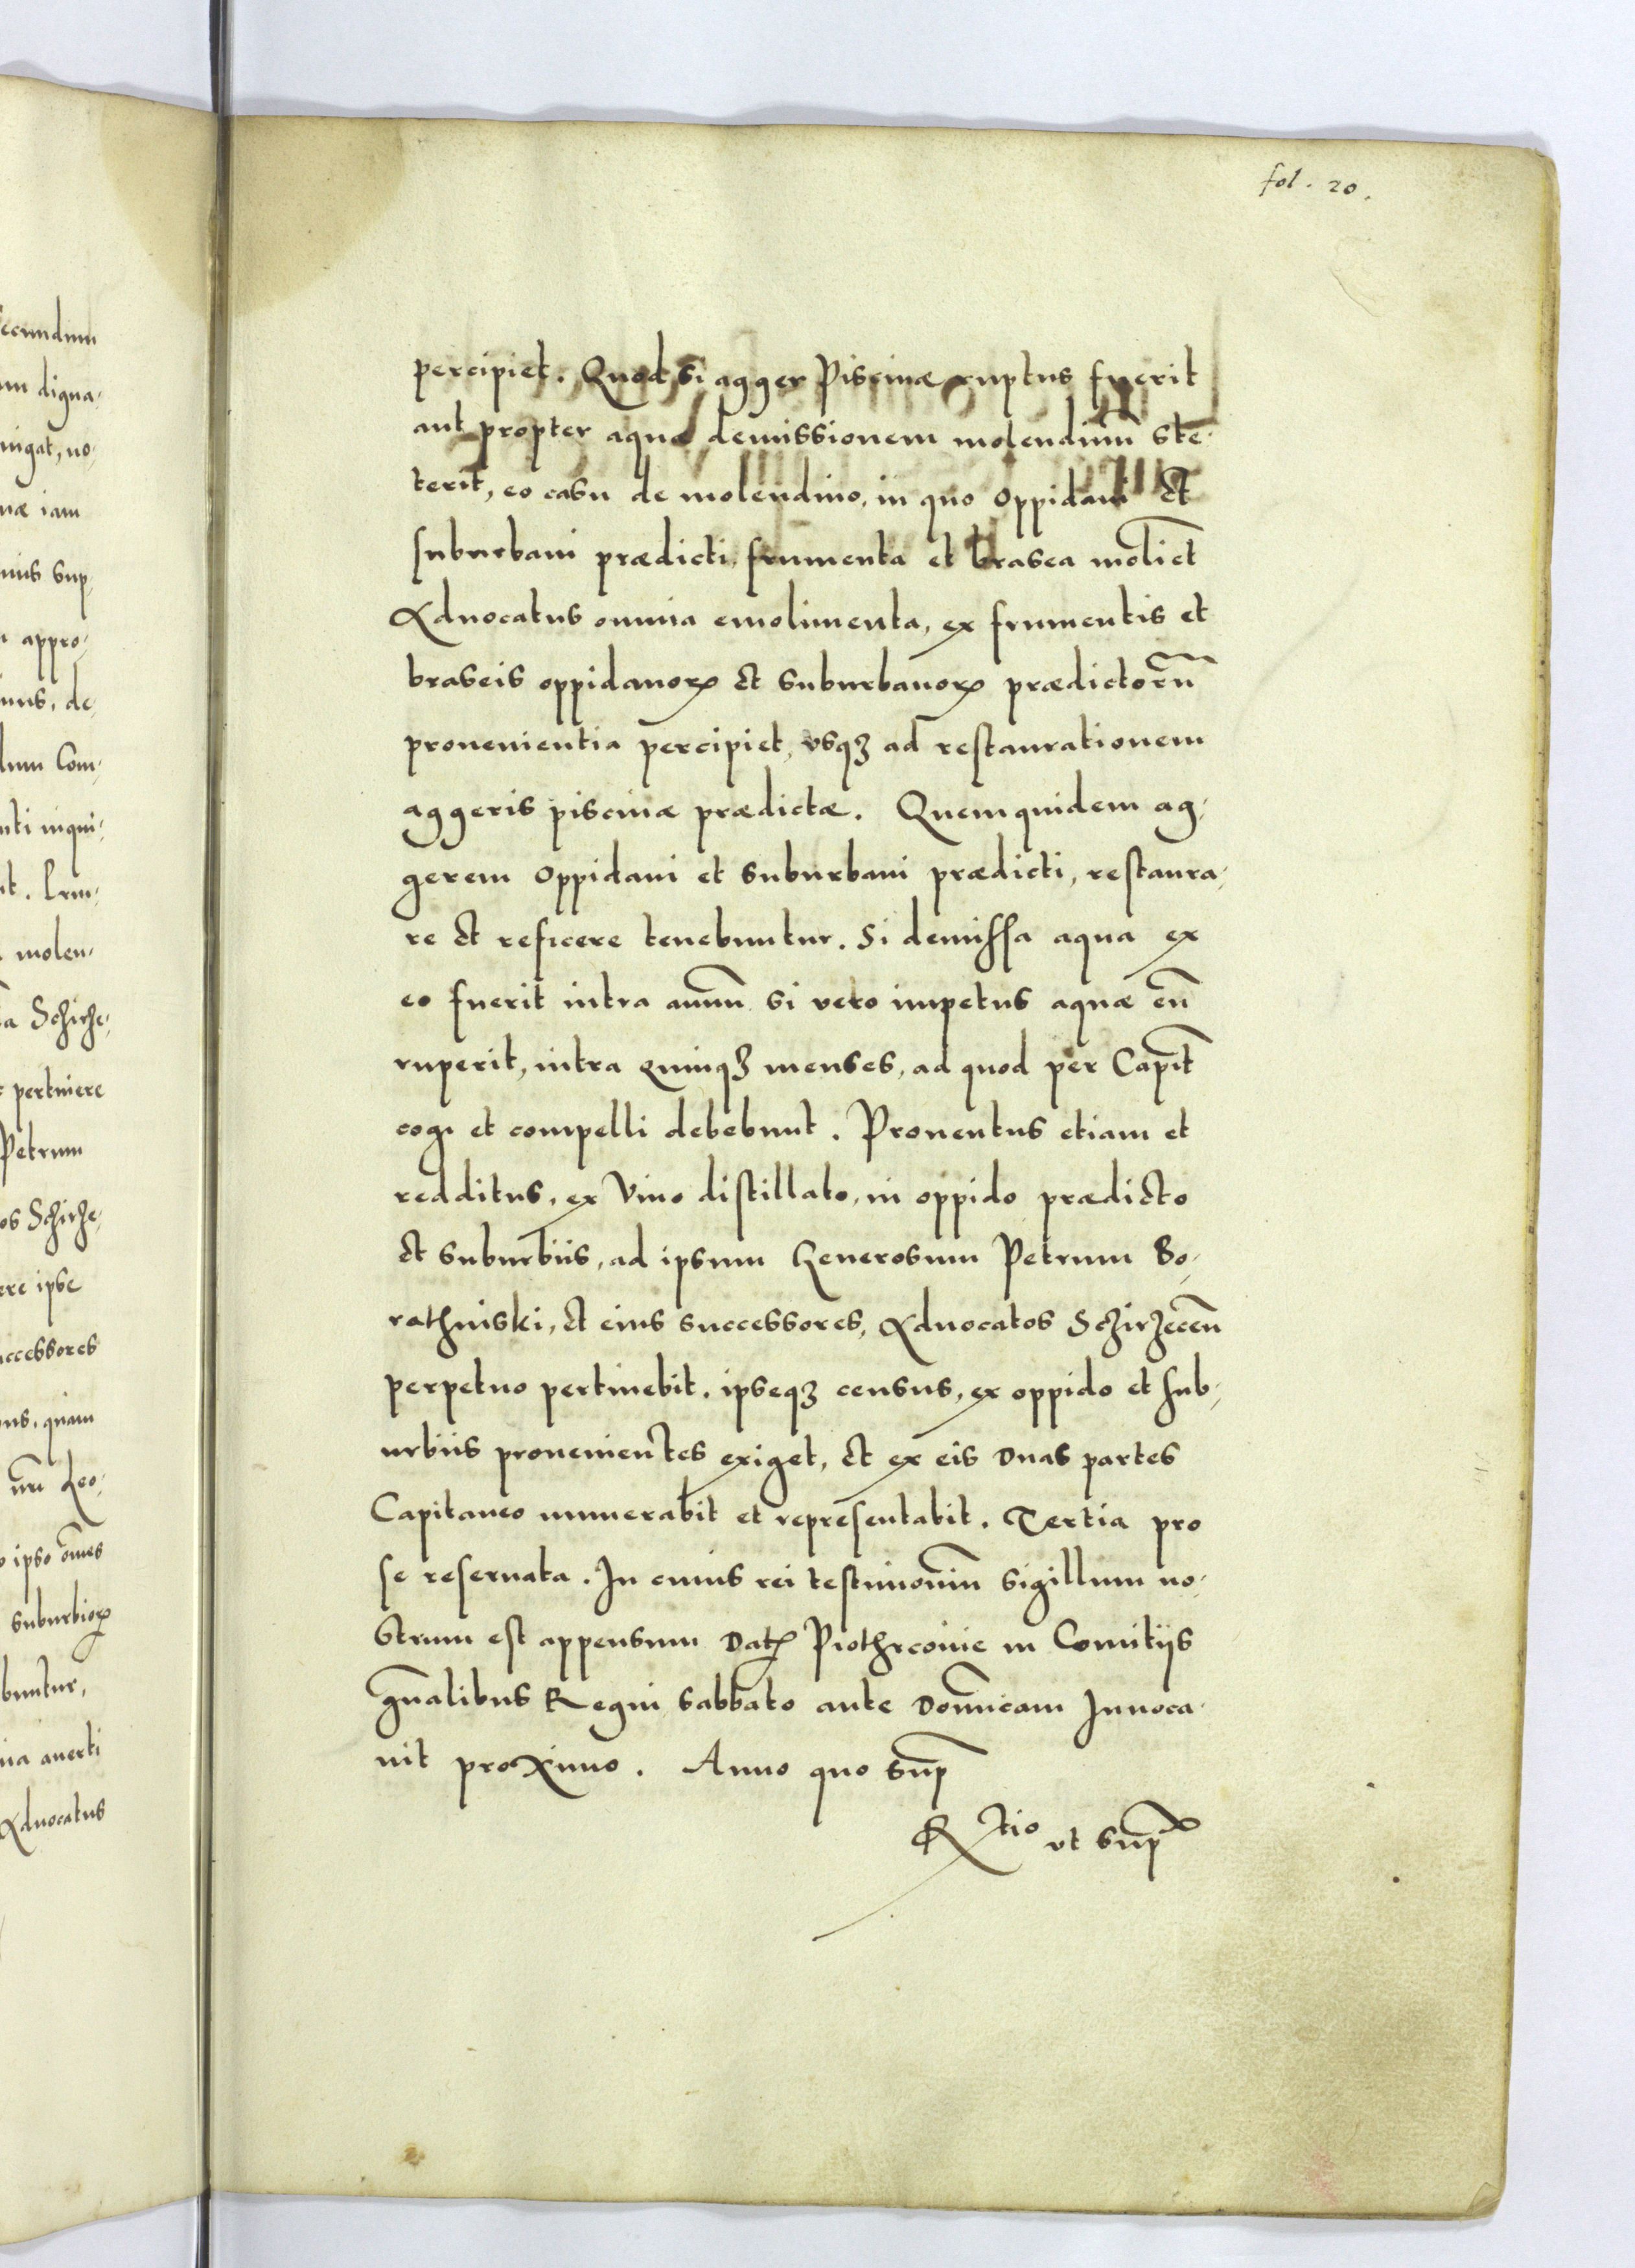 fol. 20.
percipiet. Quod si agger Piscinæ ruptus fuerit
aut propter aquæ demissionem molendinū ste-
terit, eo casu de molendino, in quo oppidani et
suburbani prædicti, frumenta et brasea molient̄
Aduocatus omnia emolimenta, ex frumentis et
braseis oppidanoꝝ et suburbanoꝝ prædictorū
prouenientia percipiet, vsqꝫ ad restaurationem
aggeris piscinæ prædictæ. Quemquidem ag-
gerem oppidani et suburbani prædicti, restaura-
re et reficere tenebuntur. Si demissa aqua ex
eo fuerit intra annū si vero impetus aquæ eū
ruperit, intra quinqꝫ menses, ad quod per Capit̄
cogi et compelli debebunt. Prouentus etiam et
redditus, ex Vino distillato, in oppido prædicto
et suburbiis, ad ipsum Generosum Petrum Bo-
rathniski, et eius successores, Aduocatos Schirzecen̄
perpetuo pertinebit. ipseqꝫ census, ex oppido et sub-
urbiis prouenientes exiget, et ex eis duas partes
Capitaneo numerabit et representabit. Tertia pro
se reseruata. In cuius rei testimoniū sigillum no-
strum est appensum Datꝭ Piothrcouie in Comitiis
gn̄alibus Regni sabbato ante Dominicam Inuoca-
uit proximo. Anno quo sup̄
R̄tio vt sup̄
ecundum
m digna-
ingat, no-
næ iam
nius sup
appro-
inus, de
lum Com-
nti inqui-
nt. Iru-
molen-
a Schirze-
pertinere
Petrum
os Schirze-
ere ipse
uccessores
ous, quam
nrū Leo-
ipso om̄es
suburbioꝝ
buntur,
nia auerti
Aduocatus